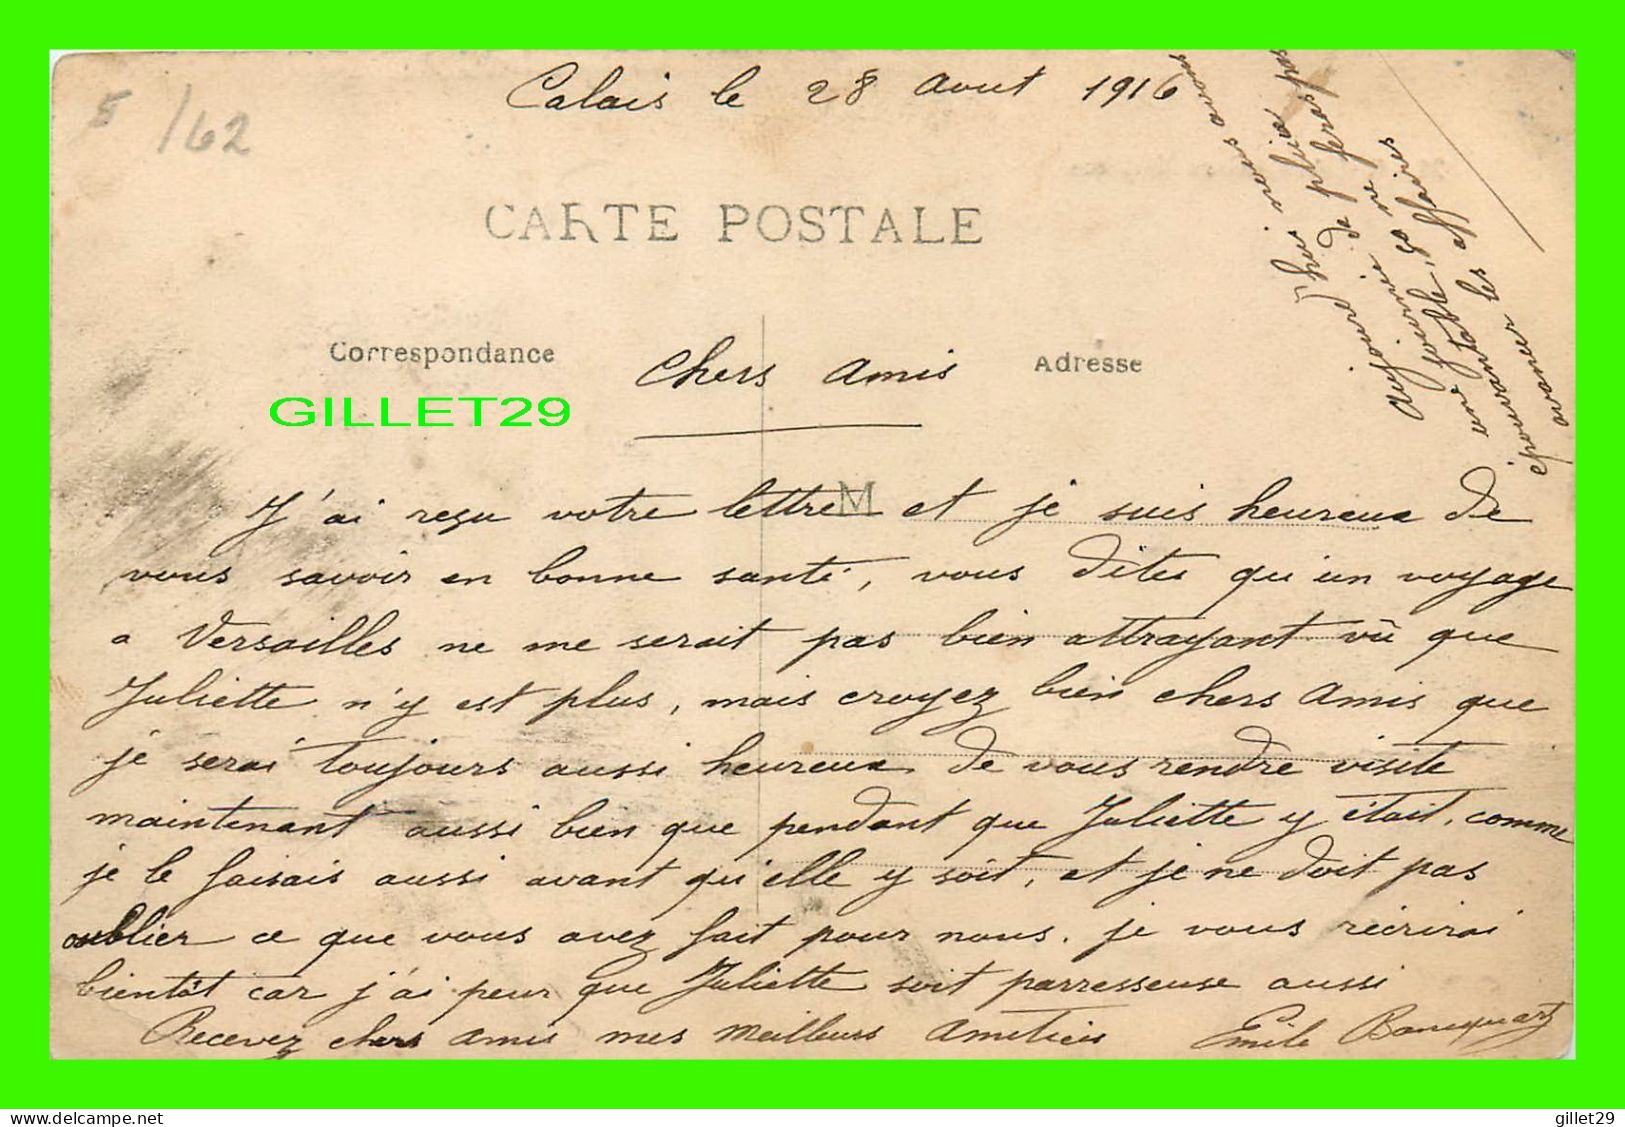 5/62
Calais le 28 Aout 1916
CARTE POSTALE
Correspondance
Adresse
GILLET29
Chers Amis
M
J'ai reçu votre lettre et je suis heureux de
vous savoir en bonne santé, vous dites qu'un voyage
a Versailles ne me serait pas bien attrayant vû que
Juliette n'y est plus, mais croyez bien chers Amis que
je serai toujours aussi heureux de vous rendre visite
maintenant aussi bien que pendant que Juliette y était, comme
je le faisais aussi avant qu'elle y soit, et je ne doit pas
oublier ce que vous avez fait pour nous. je vous récrirai
bientôt car j'ai peur que Juliette soit parresseuse aussi
Recevez chers Amis mes Meilleurs Amitiés Emile
Aujourd'hui nous avons
une journée de pluie,
épouvantable, ça ne feras pas
avancer les affaires
gillet29